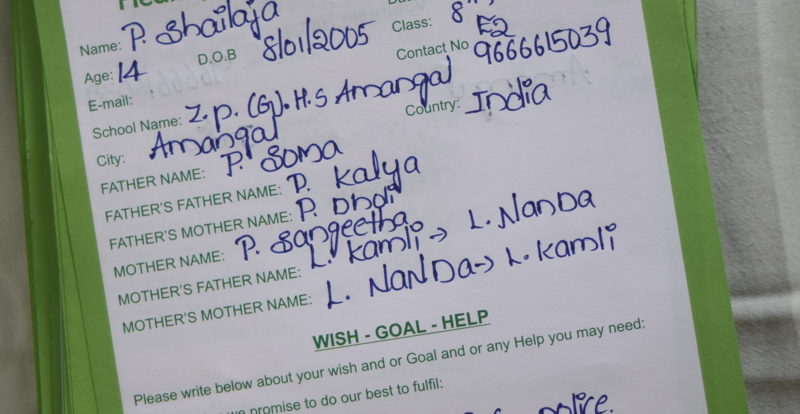 Name: P. Shailaja
Class: 8th, E2
Age: 14 D.O.B 8/01/2005 Contact No 9666615039
E-mail:
School Name: Z.P.(G).H.S Amangal
City: Amangal Country: India
FATHER NAME: P. Soma
FATHER'S FATHER NAME: P. Kalya
FATHER'S MOTHER NAME: P. Dhdi
MOTHER NAME: P. Sangeetha
MOTHER'S FATHER NAME: L. Kamli → L. NanDa
MOTHER'S MOTHER NAME: L. NANDA → L. Kamli
WISH - GOAL - HELP
Please write below about your wish and or Goal and or any Help you may need:
we promise to do our best to fulfil:
police.